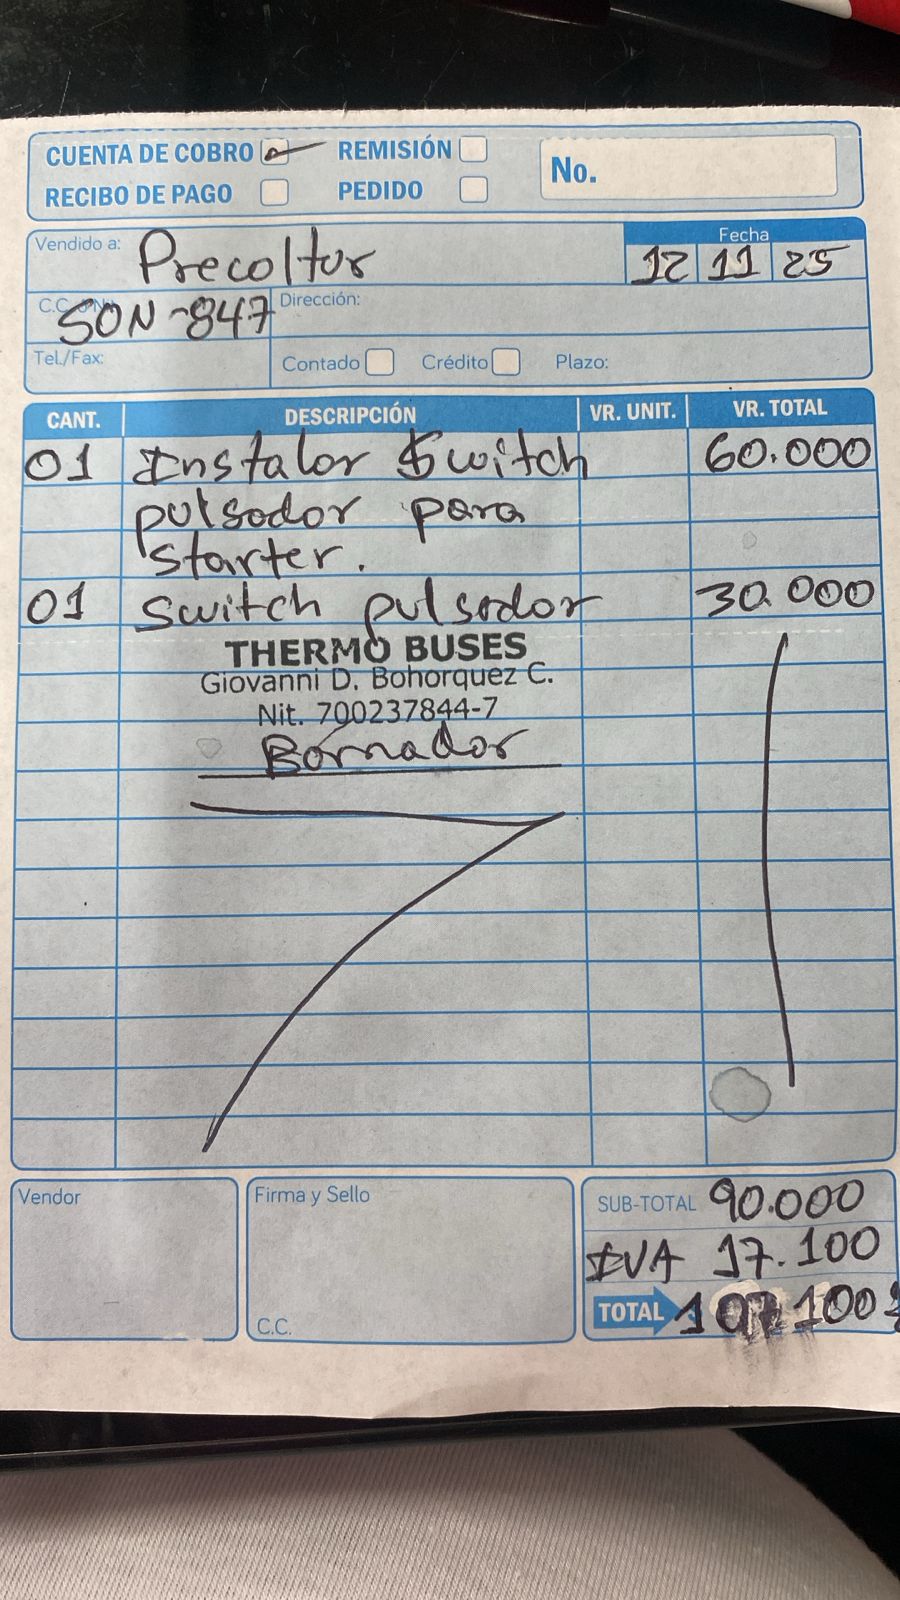 CUENTA DE COBRO REMISIÓN No.
RECIBO DE PAGO PEDIDO
Vendido a: Precoltur Fecha
12 11 25
C.C. SON-847 Dirección:
Tel./Fax: Contado Crédito Plazo:
CANT. DESCRIPCIÓN VR. UNIT. VR. TOTAL
01 Instalar Switch 60.000
pulsador para
starter.
01 Switch pulsador 30.000
THERMO BUSES
Giovanni D. Bohorquez C.
Nit. 700237844-7
Bornador
Vendor Firma y Sello SUB-TOTAL 90.000
IVA 17.100
C.C. TOTAL 107.100